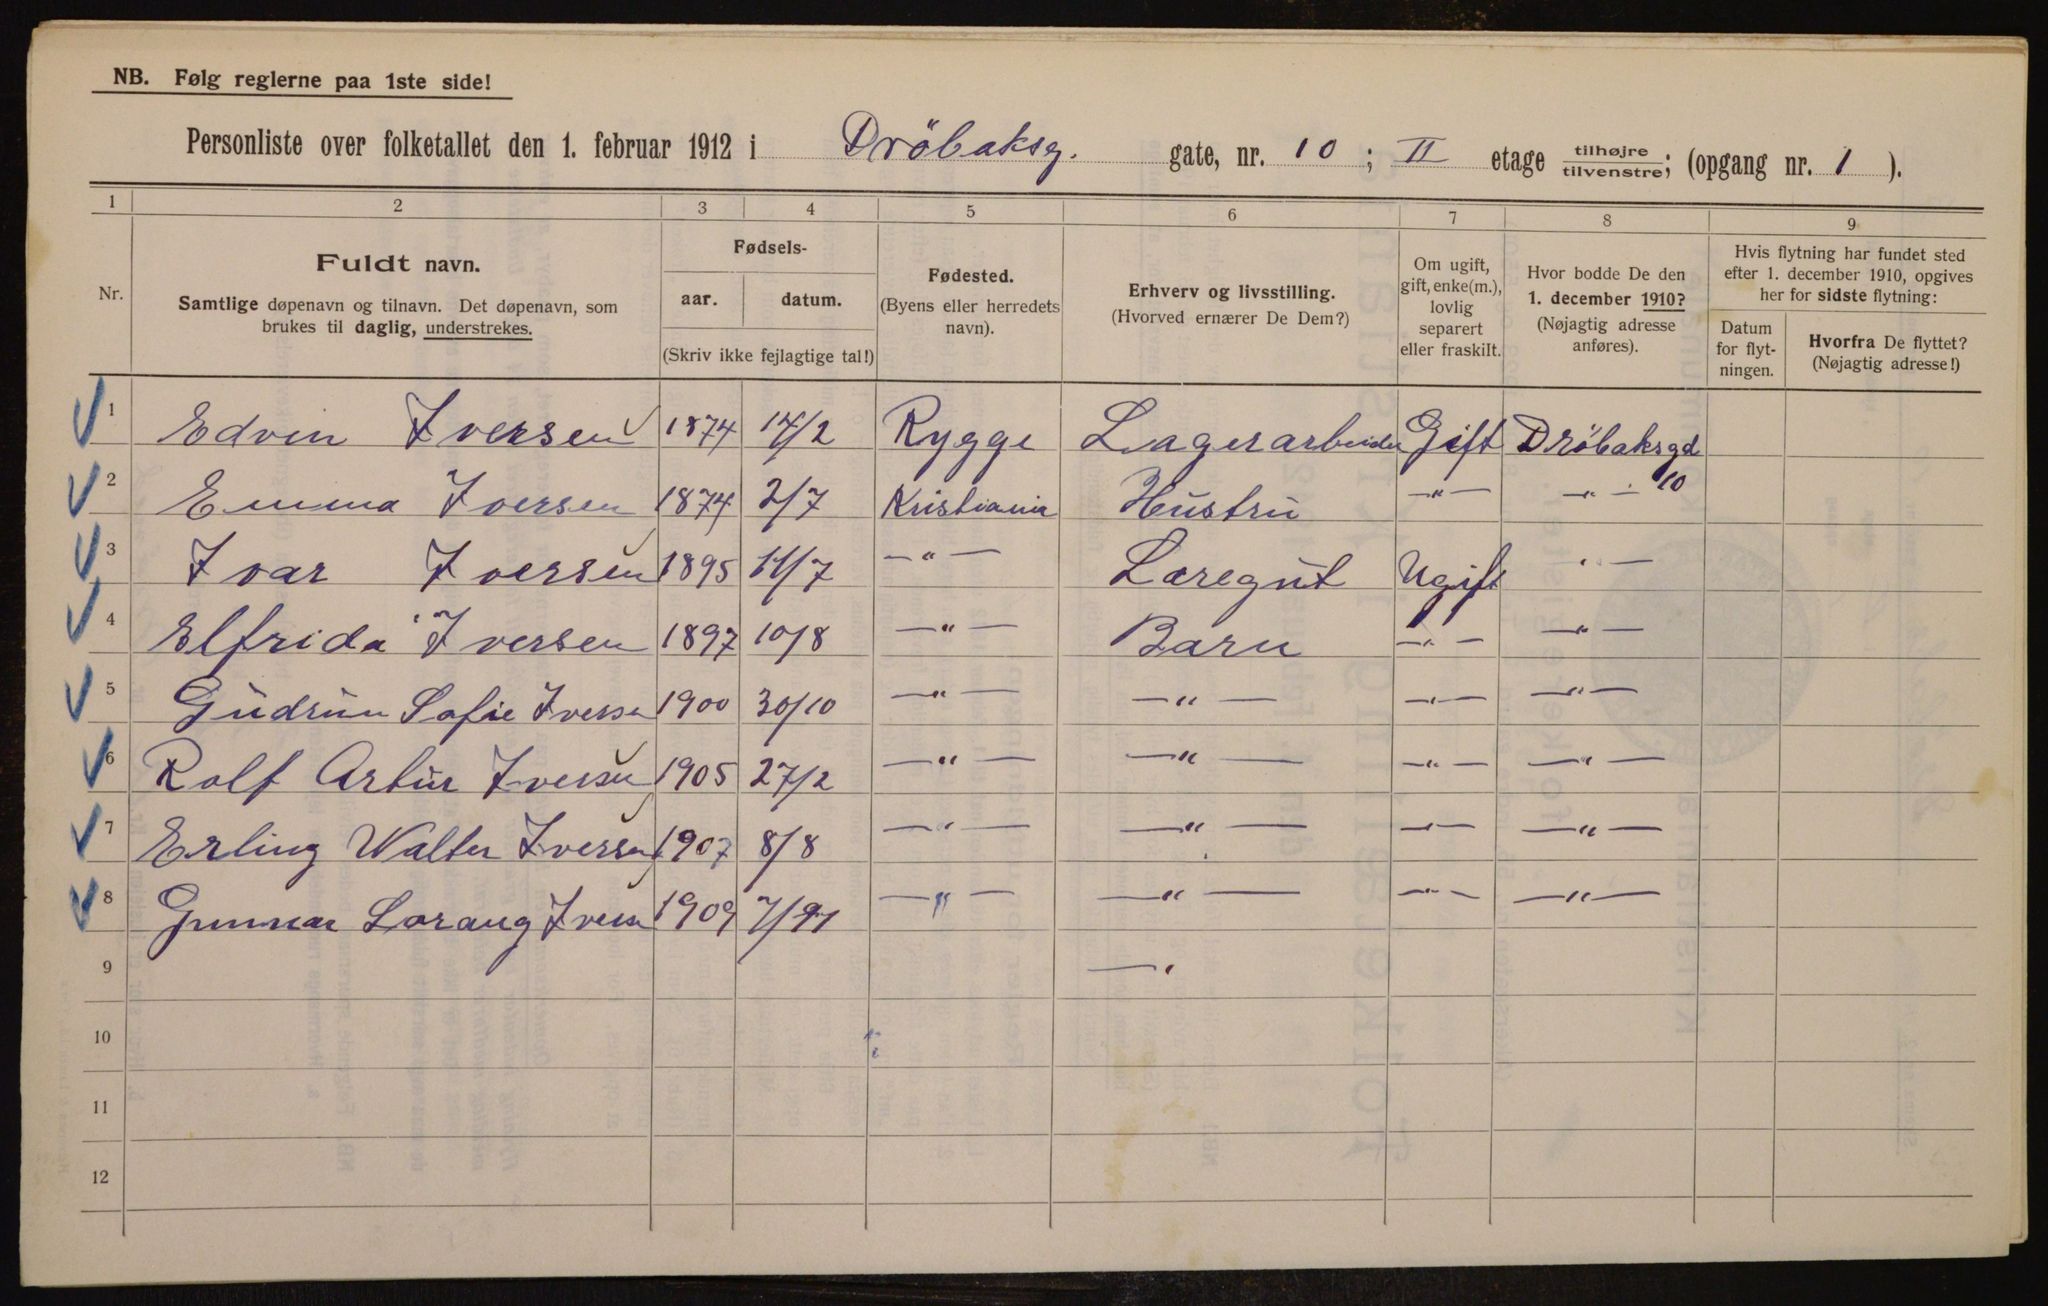 NB. Følg reglerne paa 1ste side!
Personliste over folketallet den 1. februar 1912 i Dröbaksg. gate, nr. 10; II etage tilhøjre/tilvenstre; (opgang nr. 1).
1 2 3 4 5 6 7 8 9
Nr.
Fuldt navn.
Samtlige døpenavn og tilnavn. Det døpenavn, som
brukes til daglig, understrekes.
Fødsels-
aar. datum.
(Skriv ikke fejlagtige tal!)
Fødested.
(Byens eller herredets
navn).
Erhverv og livsstilling.
(Hvorved ernærer De Dem?)
Om ugift,
gift, enke(m.),
lovlig
separert
eller fraskilt.
Hvor bodde De den
1. december 1910?
(Nøjagtig adresse
anføres).
Hvis flytning har fundet sted
efter 1. december 1910, opgives
her for sidste flytning:
Datum
for flyt-
ningen.
Hvorfra De flyttet?
(Nøjagtig adresse!)
1 Edvin Iversen 1874 /2 Rygge Lagerarbeider Gift Dröbaksgd 10
2 Emma Iversen 1874 2/7 Kristiania Hustru —"— —"—
3 Ivar Iversen 1895 11/7 —"— Læregut Ugift "—
4 Elfrida Iversen 1897 10/8 —"— Barn —"— —"—
5 Gudrun Sofie Iversen 1900 30/10 —"— —"— —"— —"—
6 Rolf Artur Iversen 1905 27/2 —"— —"— —"— —"—
7 Erling Walter Iversen 1907 8/8 —"— —"— —"— —"—
8 Gunnar Lorang Iversen 1909 7/ —"— —"— —"— —"—
9 —"
10
11
12